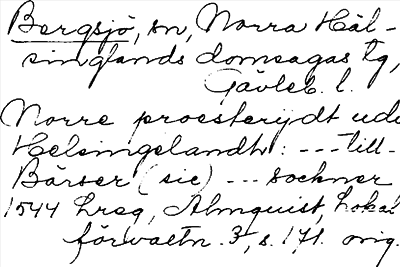 Bergsjö, sn, Norra Häl-
singlands domsagas tg,
Gävleb. l.
Norre proesterijdt udi
Helsingelandh: --- till-
Bärser (sic) --- sochner
1544 hreg, Almquist, Lokal
förvaltn. 3, s. 171. orig.